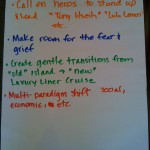 • Call on heros to stand up
& lead "Tony Hseih" "Lulu Lemon"
etc.
• Make room for the fear &
grief
• Create gentle transitions from
"old" Island → "new"
Luxury Liner Cruise
• Multi-paradigm shift social,
economic, etc